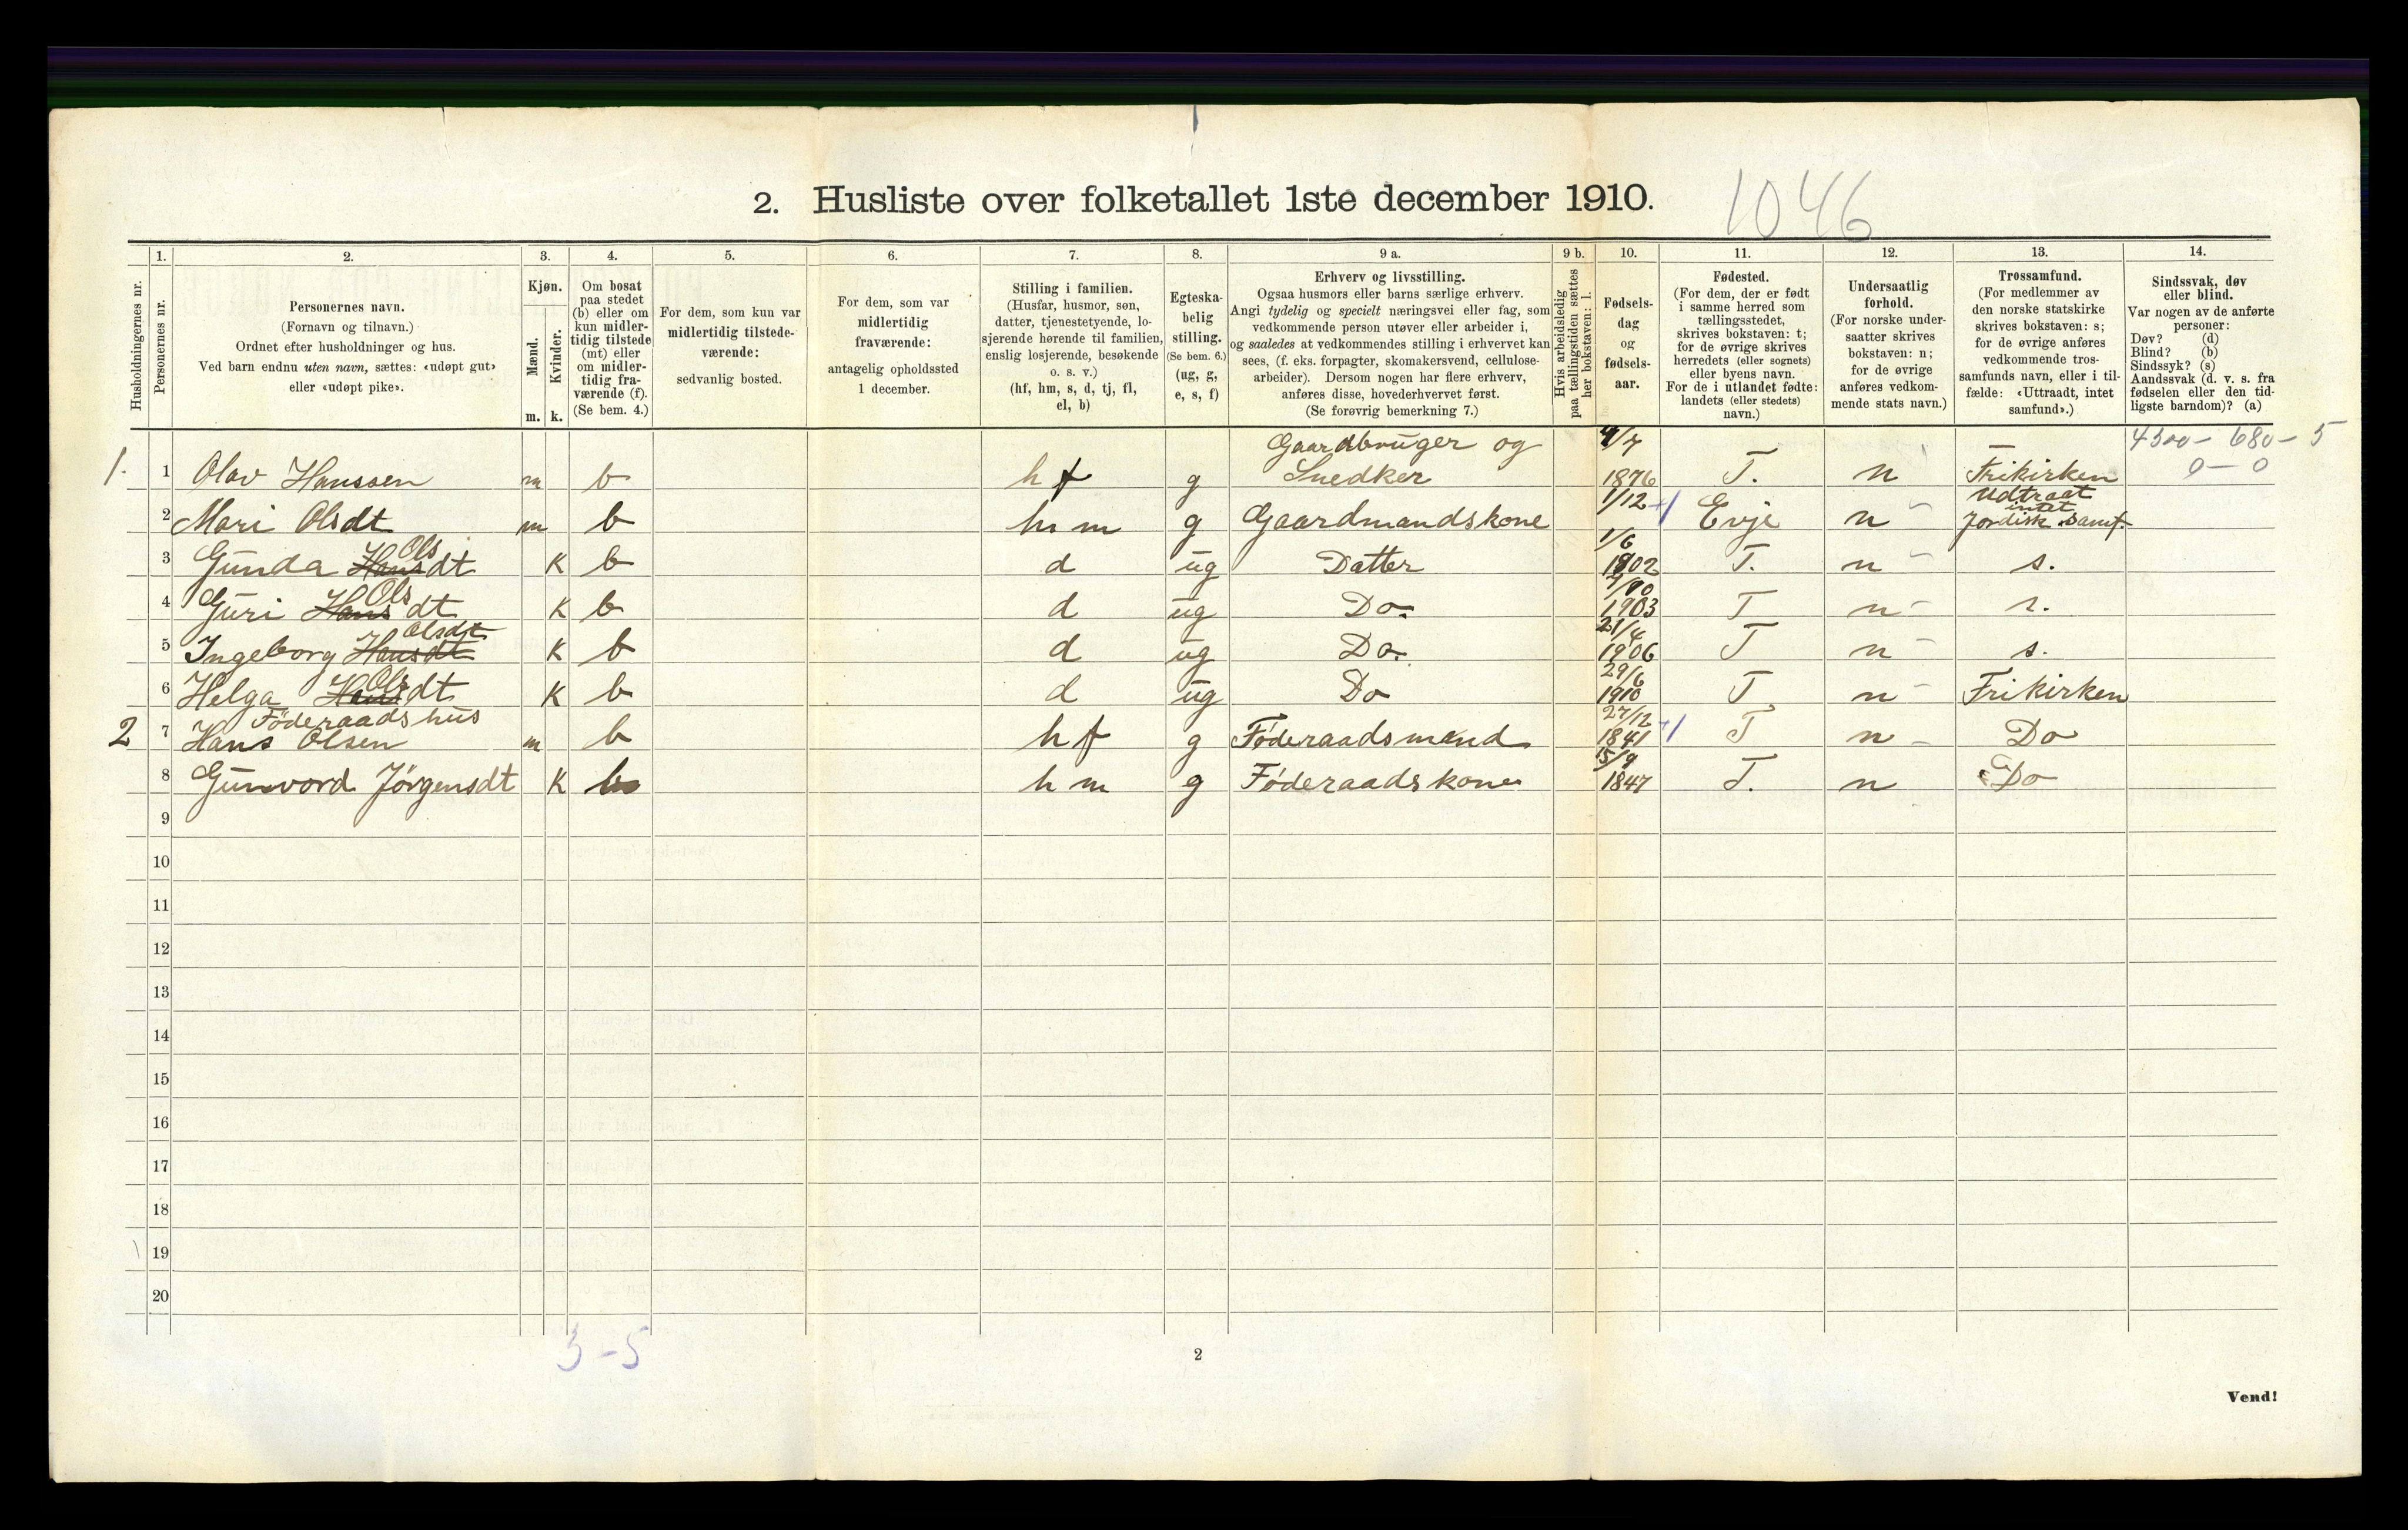 2. Husliste over folketallet 1ste december 1910.
1046
1. 2. 3. 4. 5. 6. 7. 8. 9 a. 9 b. 10. 11. 12. 13. 14.
Husholdningernes nr.
Personernes nr.
Personernes navn.
(Fornavn og tilnavn.)
Ordnet efter husholdninger og hus.
Ved barn endnu uten navn, sættes: «udøpt gut»
eller «udøpt pike».
Kjøn.
Mænd.
Kvinder.
m. k.
Om bosat
paa stedet
(b) eller om
kun midler-
tidig tilstede
(mt) eller
om midler-
tidig fra-
værende (f).
(Se bem. 4.)
For dem, som kun var
midlertidig tilstede-
værende:
sedvanlig bosted.
For dem, som var
midlertidig
fraværende:
antagelig opholdssted
1 december.
Stilling i familien.
(Husfar, husmor, søn,
datter, tjenestetyende, lo-
sjerende hørende til familien,
enslig losjerende, besøkende
o. s. v.)
(hf, hm, s, d, tj, fl,
el, b)
Egteska-
belig
stilling.
(Se bem. 6.)
(ug, g,
e, s, f)
Erhverv og livsstilling.
Ogsaa husmors eller barns særlige erhverv.
Angi tydelig og specielt næringsvei eller fag, som
vedkommende person utøver eller arbeider i,
og saaledes at vedkommendes stilling i erhvervet kan
sees, (f. eks. forpagter, skomakersvend, cellulose-
arbeider). Dersom nogen har flere erhverv,
anføres disse, hovederhvervet først.
(Se forøvrig bemerkning 7.)
Hvis arbeidsledig
paa tællingstiden sættes
her bokstaven: l.
Fødsels-
dag
og
fødsels-
aar.
Fødested.
(For dem, der er født
i samme herred som
tællingsstedet,
skrives bokstaven: t;
for de øvrige skrives
herredets (eller sognets)
eller byens navn.
For de i utlandet fødte:
landets (eller stedets)
navn.)
Undersaatlig
forhold.
(For norske under-
saatter skrives
bokstaven: n;
for de øvrige
anføres vedkom-
mende stats navn.)
Trossamfund.
(For medlemmer av
den norske statskirke
skrives bokstaven: s;
for de øvrige anføres
vedkommende tros-
samfunds navn, eller i til-
fælde: «Uttraadt, intet
samfund».)
Sindssvak, døv
eller blind.
Var nogen av de anførte
personer:
Døv? (d)
Blind? (b)
Sindssyk? (s)
Aandssvak (d. v. s. fra
fødselen eller den tid-
ligste barndom)? (a)
Gaardbruger og 4/7 4500 - 680 - 5
1. 1 Olav Hanssen m b hf g Snedker 1876 T. n Frikirken 0 - 0
1/12 Udtraat intet
2 Mari Olsdt m b hm g Gaardmandskone Evje n Jordisk samf.
Ols 1/6
3 Gunda Hansdt K b d ug Datter 1902 T. n s.
Ols
4 Guri Hansdt K b d ug Do. 1903 T n s.
Olsdt 21/4
5 Ingeborg Hansdt K b d ug Do. 1906 T n s.
Ols 29/6
6 Helga Hansdt K b d ug Do 1910 T n Frikirken
Föderaadshus 27/12
2 7 Hans Olsen m b hf g Föderaadsmand 1841 T n Do
15/9
8 Gunvord Jörgensdt K b hm g Föderaadskone 1847 T. n Do
9
10
11
12
13
14
15
16
17
18
19
20
3 - 5
2
Vend!